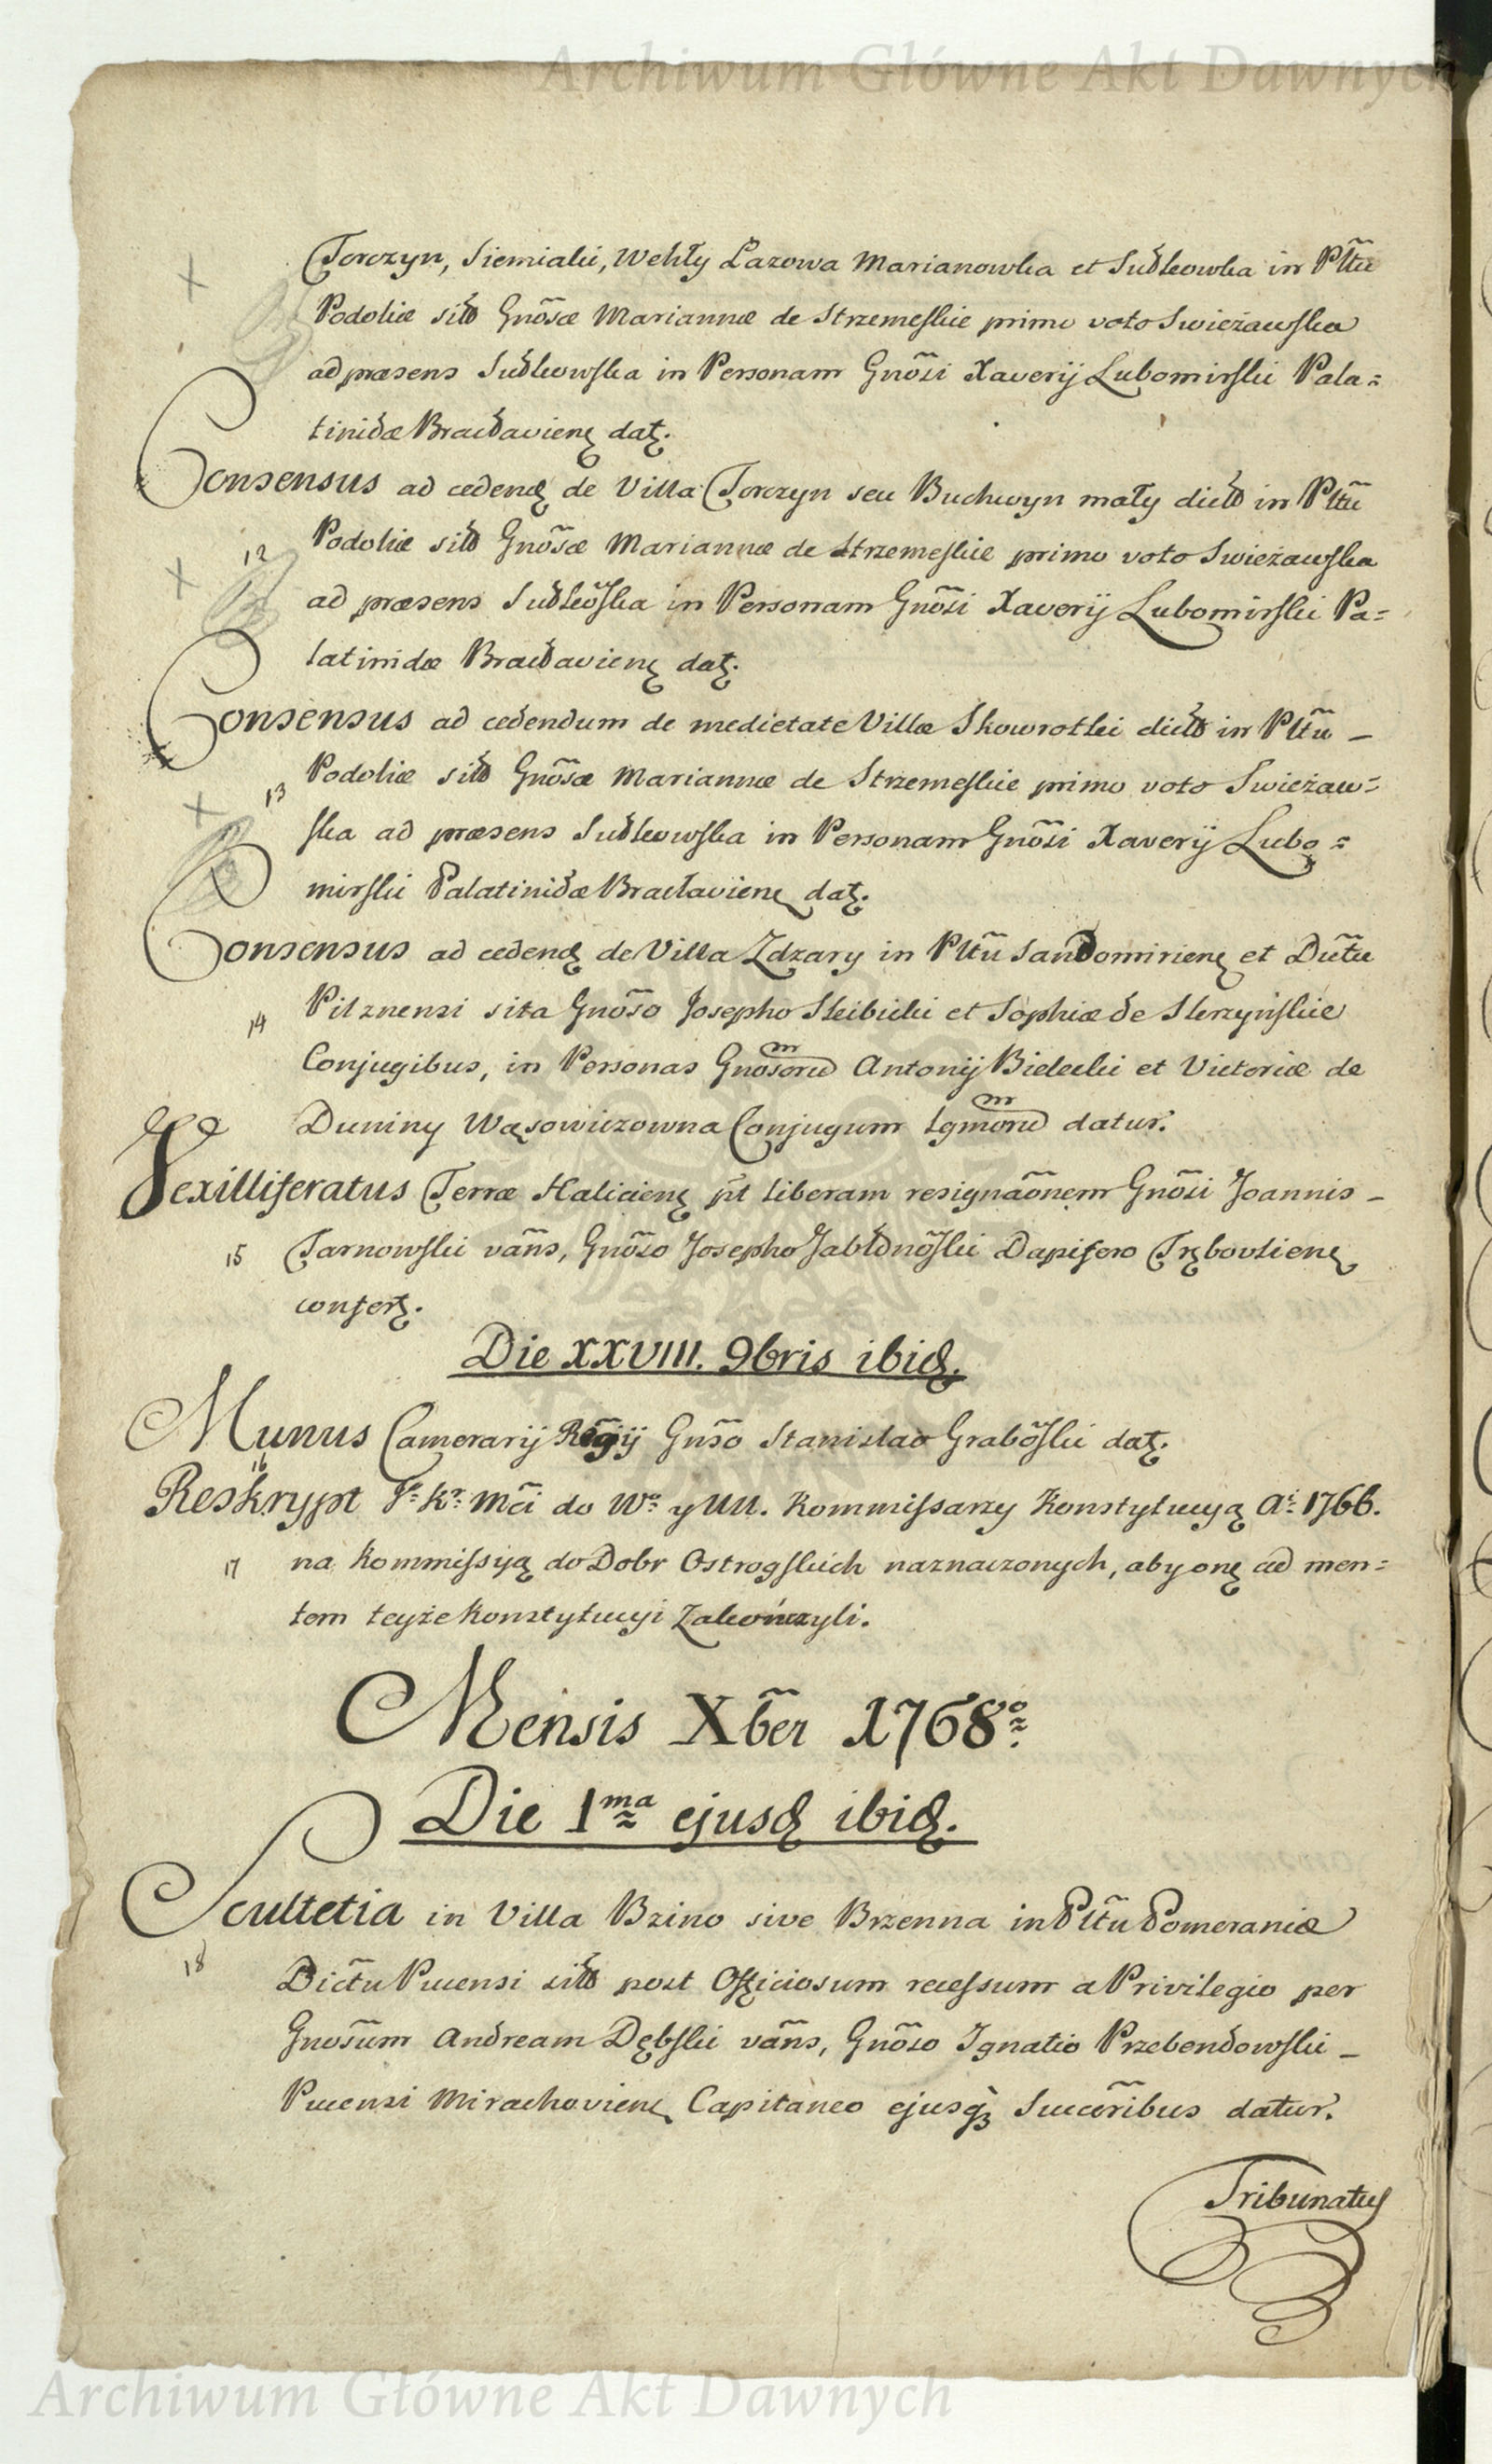 Archiwum Główne Akt Dawnych
Torczyn, Siemiaki, Wehły Łazowa Marianowka et Sudkowka in Płtũ
Podoliæ sitt Gnõsæ Mariannæ de Strzemeskie primo voto Swieżawska
ad præsens Sudkowska in Personam Gnõsi Xaverij Lubomirski Pala=
tinidæ Bracłavienę datę.
Consensus ad cedendę de Villa Torczyn seu Buchwyn mały dictt in Płtũ
12
Podoliæ sitt Gnõsæ Mariannæ de Strzemeskie primo voto Swieżawska
ad præsens Sudkõska in Personam Gnõsi Xaverij Lubomirski Pa=
latinidæ Bracłavienę datę.
Consensus ad cedendum de medietate Villæ Skowrotki dictt in Płtũ –
13
Podoliæ sitt Gnõsæ Mariannæ de Strzemeskie primo voto Swieżaw=
ska ad præsens Sudkowska in Personam Gnõsi Xaverij Lubo=
mirski Palatinidæ Bracłavienę datę.
Consensus ad cedendę de Villa Zdzary in Płtũ Sandomirienę et Dũtu
14
Pilznensi sita Gnõso Josepho Skibicki et Sophiæ de Skrzynskie
Conjugibus, in Personas Gnosorum Antonij Bielecki et Victoriæ de
Duniny Wąsowiczowna Conjugum Lgmorum datur.
Vexilliferatus Terræ Halicienę p̃t liberam resignãonem Gnõsi Joannis –
15
Tarnowski vãns, Gnõso Josepho Jabłonõski Dapifero Trębovlienę
confertę.
Die XXVIII. 9bris ibidę.
Munus Camerarij Regij Gnsõ Stanislao Grabõski datę.
16
Reskrypt J. Kr. Mci do Wo. y UU. Kommissarzy Konstytucyą Ai. 1766.
17
na Kommissyą do Dobr Ostrogskich naznaczonych, aby onę ad men=
tem teyże Konstytucyi Zakończyli.
Mensis Xb̃er 1768o.
Die 1ma ejusdę ibidę.
Scultetia in Villa Brzino sive Brzenna in Płtũ Pomeraniæ
18
Dictũ Pucensi sitt post Officiosum recessum a Privilegio per
Gnosũm Andream Dębski vãns, Gnõso Ignatio Przebendowski –
Pucensi Mirachovienę Capitaneo ejusq̃ Succõribus datur.
Tribunatus
Archiwum Główne Akt Dawnych